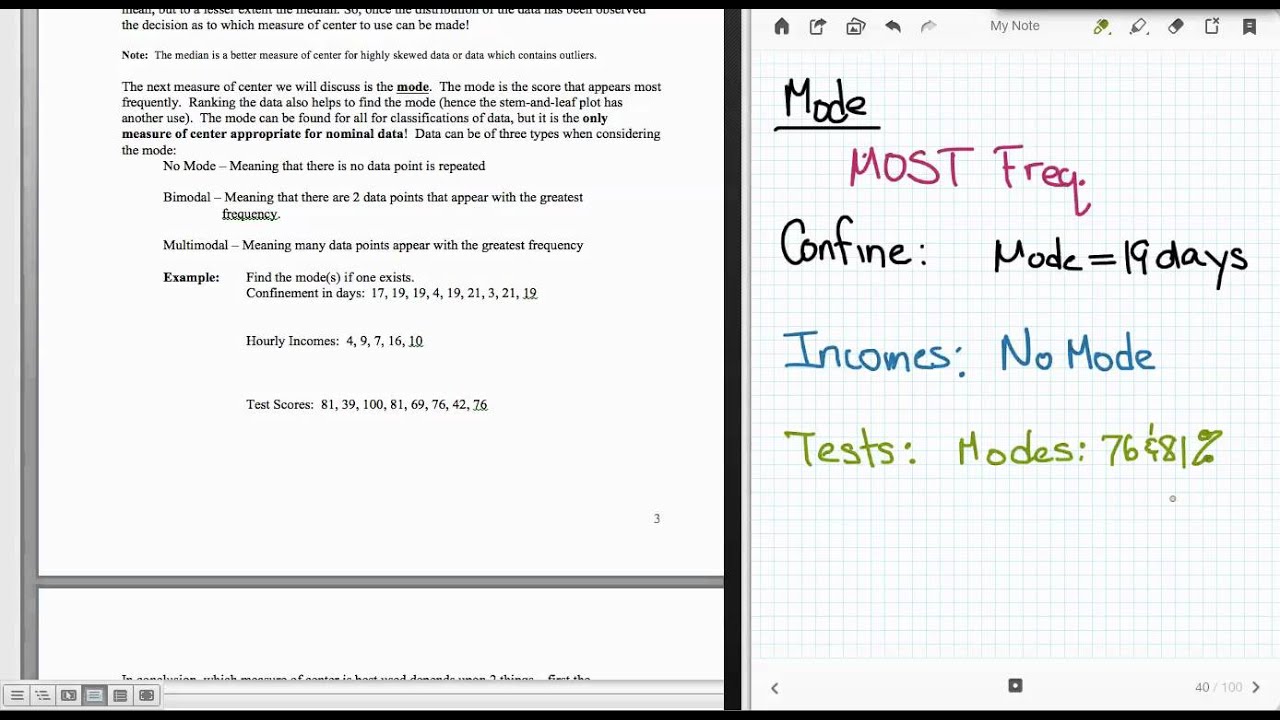 mean, but to a lesser extent the median. So, once the distribution of the data has been observed
the decision as to which measure of center to use can be made!
Note: The median is a better measure of center for highly skewed data or data which contains outliers.
The next measure of center we will discuss is the mode. The mode is the score that appears most
frequently. Ranking the data also helps to find the mode (hence the stem-and-leaf plot has
another use). The mode can be found for all for classifications of data, but it is the only
measure of center appropriate for nominal data! Data can be of three types when considering
the mode:
No Mode – Meaning that there is no data point is repeated
Bimodal – Meaning that there are 2 data points that appear with the greatest
frequency.
Multimodal – Meaning many data points appear with the greatest frequency
Example: Find the mode(s) if one exists.
Confinement in days: 17, 19, 19, 4, 19, 21, 3, 21, 19
Hourly Incomes: 4, 9, 7, 16, 10
Test Scores: 81, 39, 100, 81, 69, 76, 42, 76
3
In conclusion, which measure of center is best used depends upon 2 things – first the
My Note
Mode
MOST Freq.
Confine: Mode = 19 days
Incomes: No Mode
Tests: Modes: 76 & 81%
40 / 100